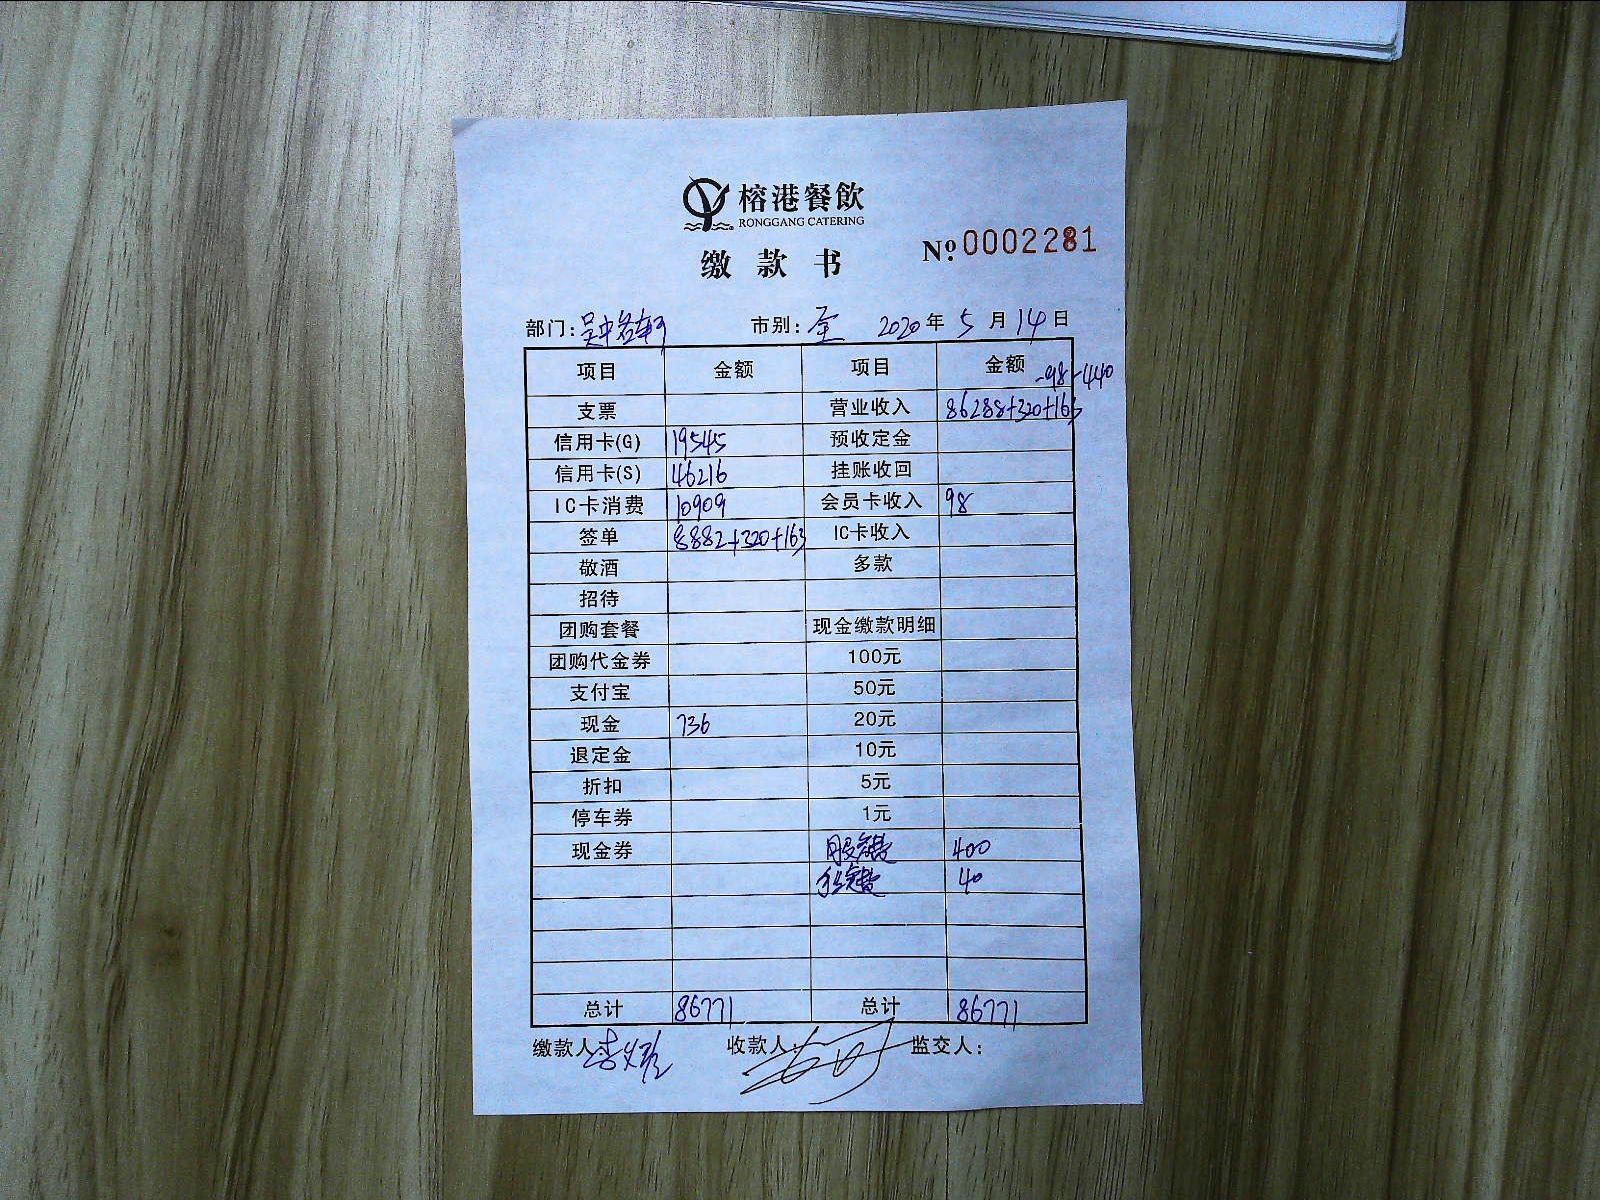 榕港餐飲
RONGGANG CATERING
缴款书
№0002281
部门: 市别:全 2020年5月14日
项目 金额 项目 金额 -98-440
支票 营业收入 86288+320+163
信用卡(G) 19545 预收定金
信用卡(S) 46216 挂账收回
IC卡消费 10909 会员卡收入 98
签单 8882+320+163 IC卡收入
敬酒 多款
招待
团购套餐 现金缴款明细
团购代金券 100元
支付宝 50元
现金 736 20元
退定金 10元
折扣 5元
停车券 1元
现金券 400
40
总计 86771 总计 86771
缴款人: 收款人: 监交人: